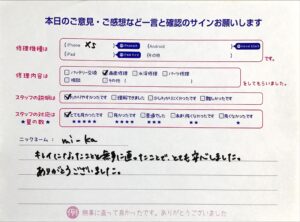 本日のご意見・ご感想など一言と確認のサインお願いします
修理機種は
iPhone XS
Android
iPad
その他
です。
修理内容は
バッテリー交換 画面修理 水没修理 パーツ修理
相談 その他
をしてもらいました。
スタッフの説明は
わかりやすかったです 理解できました 少しわかりにくかったです 難しかったです
スタッフの対応は
★星の数★
とても良かったです 良かったです 普通でした あまり良くなかったです 良くなかったです
★★★★★ ★★★★ ★★★ ★★ ★
ニックネーム: mi-ka
キレイになったことと無事に直ったことで、とても安心しました。
ありがとうございました。
無事に直って良かったです。ありがとうございます